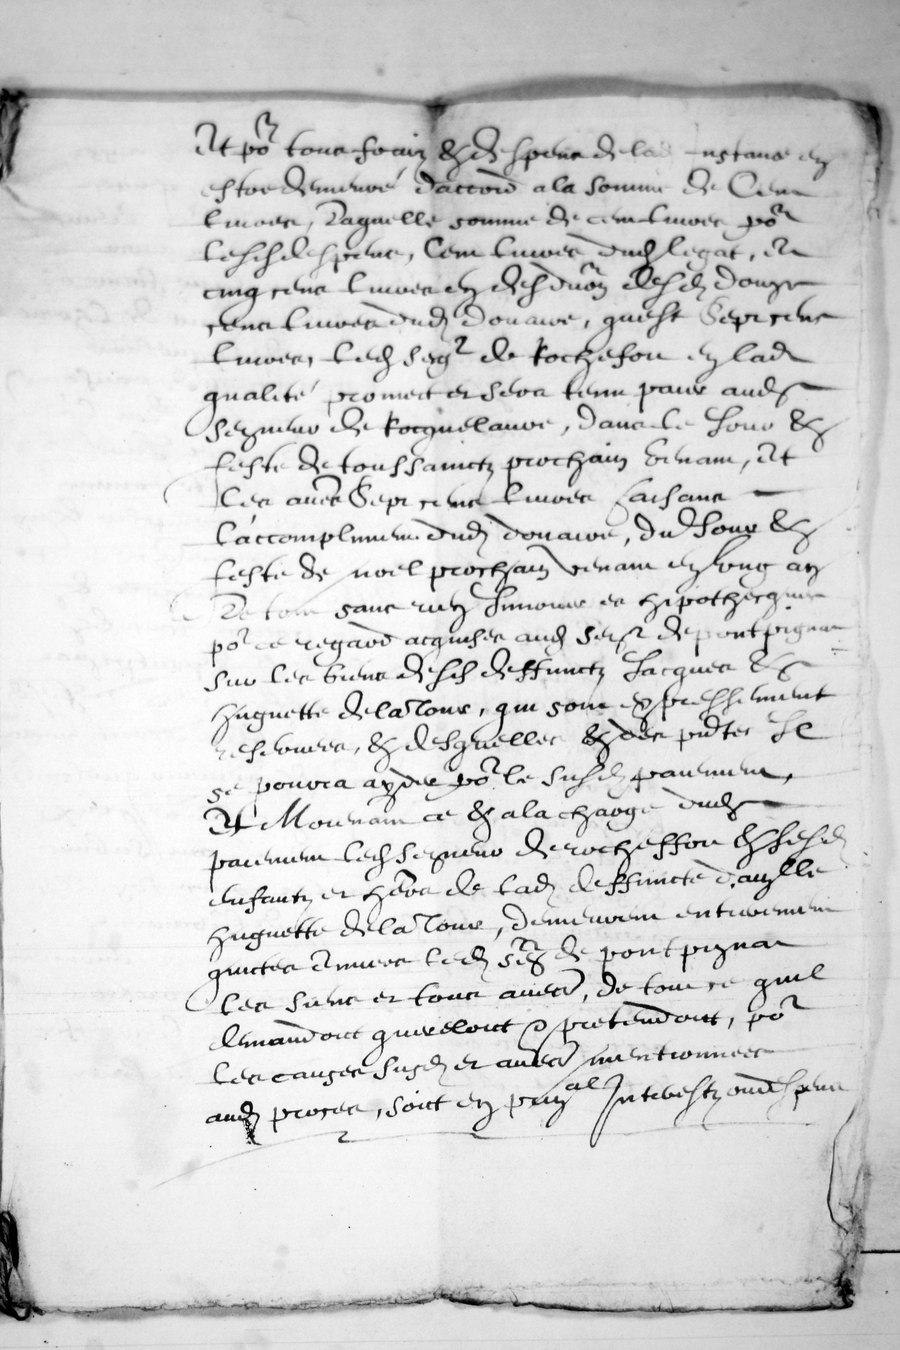 Et por tous fraiz & despens de lad instance en
estre demeuré d'accord a la somme de Cent
livres, Laquelle somme de cent livres por
lesd despens, Cent livres dud legat, et
cinq cens livres en desdon desd douze
cens livres dud douaire, quest Sept cens
livres, led segr de Rochefort en lad
qualité promect et sera tenu paier aud
Seigneur de Rocquelaure, dans le Jour &
feste de toussainctz prochain venant, Et
les aues Sept cens livres faisans
l'accompliment dud douaire, du Jour &
feste de noel prochain venant en ung an
Le tout sans rien Innover es hipothecques
por ce regard acquises aud segr de pontpignan
sur les biens desd deffunctz Jacques &
huguette de la Tour, qui sont expressement
reservees, & desquelles & des pntes Il
se pourra ayder por le susd paiement,
Et Moienant ce & a la charge dud
paiement led seigneur de rocheffort & sesd
enfantz et hers de lad deffuncte d,aylle
huguette de la Tour, demeurent entierement
quictes envers led sgr de pontpignan
les siens et tous aues, de tout ce quil
demandoit quereloit & pretendoit, por
les causes susd et aues mentionnees
aud proces, soit en prinal Interestz ou despens